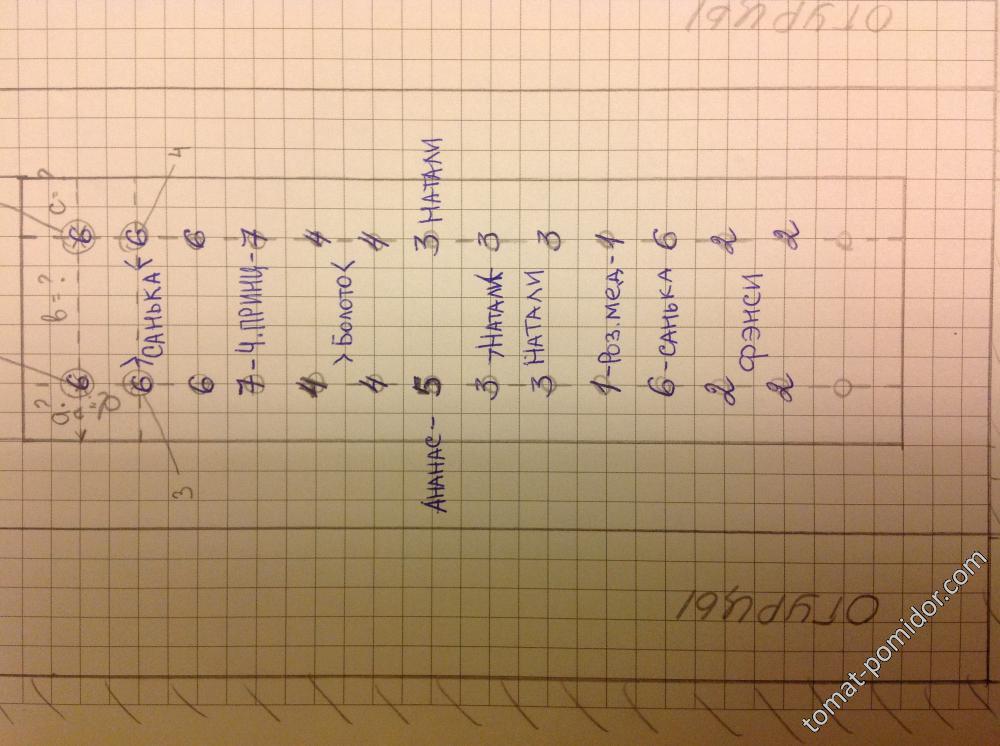 ОГУРЦЫ
4
a=? b=? c=?
6 6
6 >САНЬКА< 6
6 6
7-Ч.ПРИНЦ-7
4 4
>БОЛОТО<
4 4
АНАНАС-5 3 НАТАЛИ
3 НАТАЛИ 3
3 НАТАЛИ 3
1-РОЗ.МЕД-1
6-САНЬКА 6
2 2
ФЭНСИ
2 2
3
ОГУРЦЫ
tomat-pomidor.com